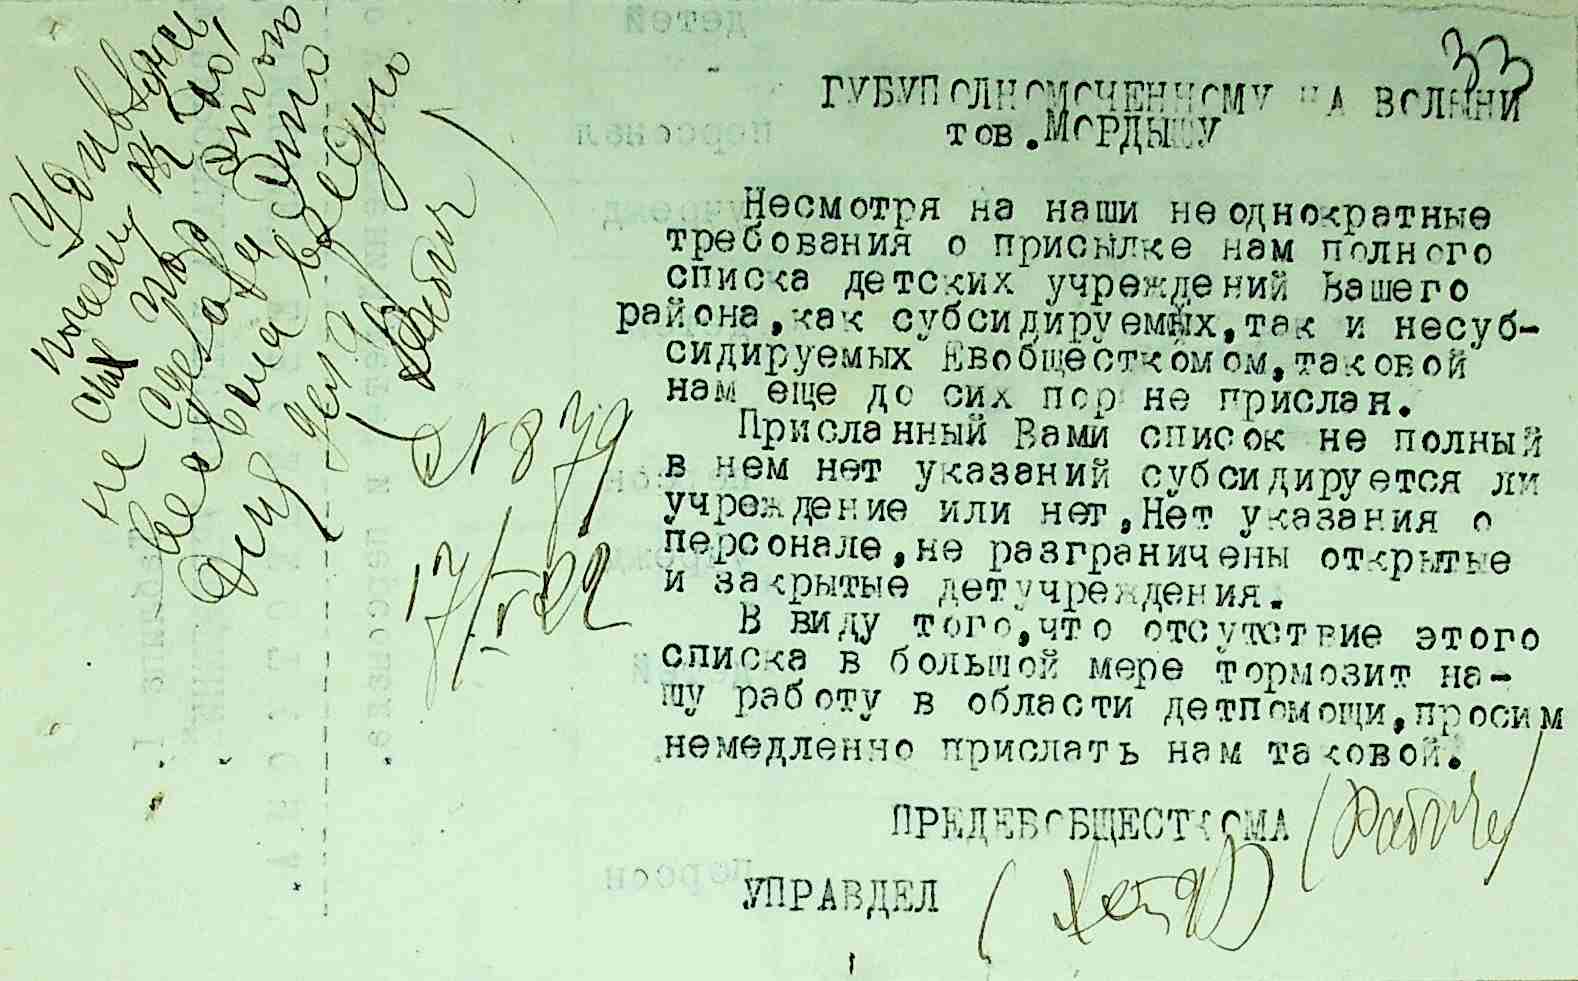 33
ГУБУПОЛНОМОЧЕННОМУ НА ВОЛЫНИ
тов. МОРДЫШУ
Несмотря на наши неоднократные
требования о присылке нам полного
списка детских учреждений Вашего
района, как субсидируемых, так и несуб-
сидируемых Евобщесткомом, таковой
нам еще до сих пор не прислан.
Присланный Вами список не полный
в нем нет указаний субсидируется ли
учреждение или нет, Нет указания о
персонале, не разграничены открытые
и закрытые детучреждения.
В виду того, что отсутствие этого
списка в большой мере тормозит на-
шу работу в области детпомощи, просим
немедленно прислать нам таковой.
ПРЕДЕВОБЩЕСТКОМА
УПРАВДЕЛ
Удивляюсь
почему до
сих пор
не сделали
№ 879
17/V-22